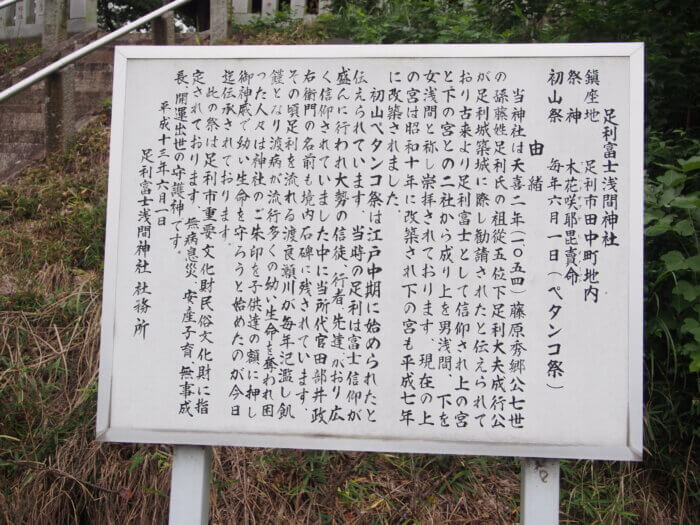 足利富士浅間神社
鎮座地　足利市田中町地内
祭神　木花咲耶毘賣命
初山祭　毎年六月一日（ペタンコ祭）
由緒
当神社は天喜二年（一〇五四）藤原秀郷公七世
の孫藤姓足利氏の祖従五位下足利大夫成行公
が足利城築城に際し勧請されたと伝えられて
おり古来より足利富士として信仰され上の宮
と下の宮との二社から成り上を男浅間、下を
女浅間と称し崇拝されております。現在の上
の宮は昭和十年に改築され下の宮も平成七年
に改築されました。
初山ペタンコ祭は江戸中期に始められたと
伝えられています。当時の足利は富士信仰が
盛んに行われ大勢の信徒、行者、先達、がおり広
く信仰されていました中に当所代官田部井政
右衛門の名前も境内石碑に残されています。
その頃足利を流れる渡良瀬川が毎年氾濫し飢
饉となり渡病が流行多くの幼い生命を奪われ困
った人々は神社のご朱印を子供達の額に押し
御神威で幼い生命を守ろうと始めたのが今日
迄伝承されております。
此の祭は足利市重要文化財民俗文化財に指
定されております。無病息災、安産子育、無事成
長、開運出世の守護神です。
平成十三年六月一日
足利富士浅間神社社務所